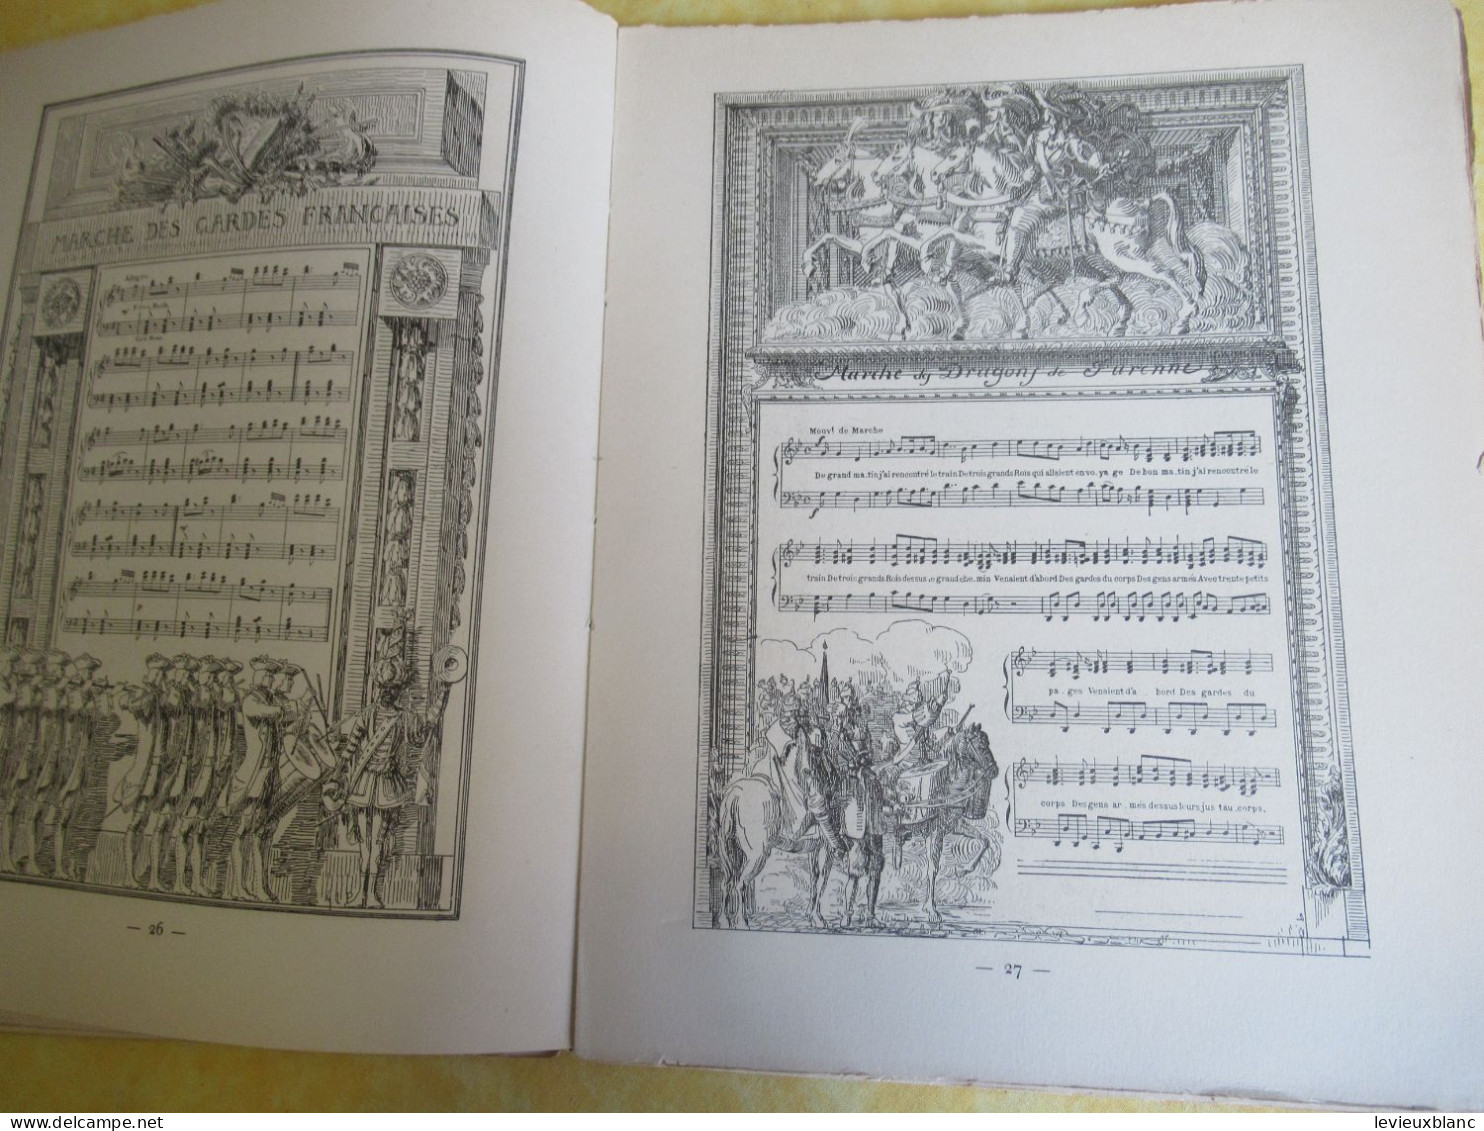 MARCHE DES GARDES FRANÇAISES
Allegro
— 26 —
Marche des Dragons de Turenne
Mouvt de Marche
De grand ma.tin j'ai rencontré le train De trois grands Rois qui allaient en vo.ya ge De bon ma.tin j'ai rencontré le
train De trois grands Rois dessus le grand che.min Venaient d'abord Des gardes du corps Des gens armés Avec trente petits
pa.ges Venaient d'a bord Des gardes du
corps Des gens ar.més dessus leurs jus tau.corps.
— 27 —
levieuxblanc
https://www.delcampe.net